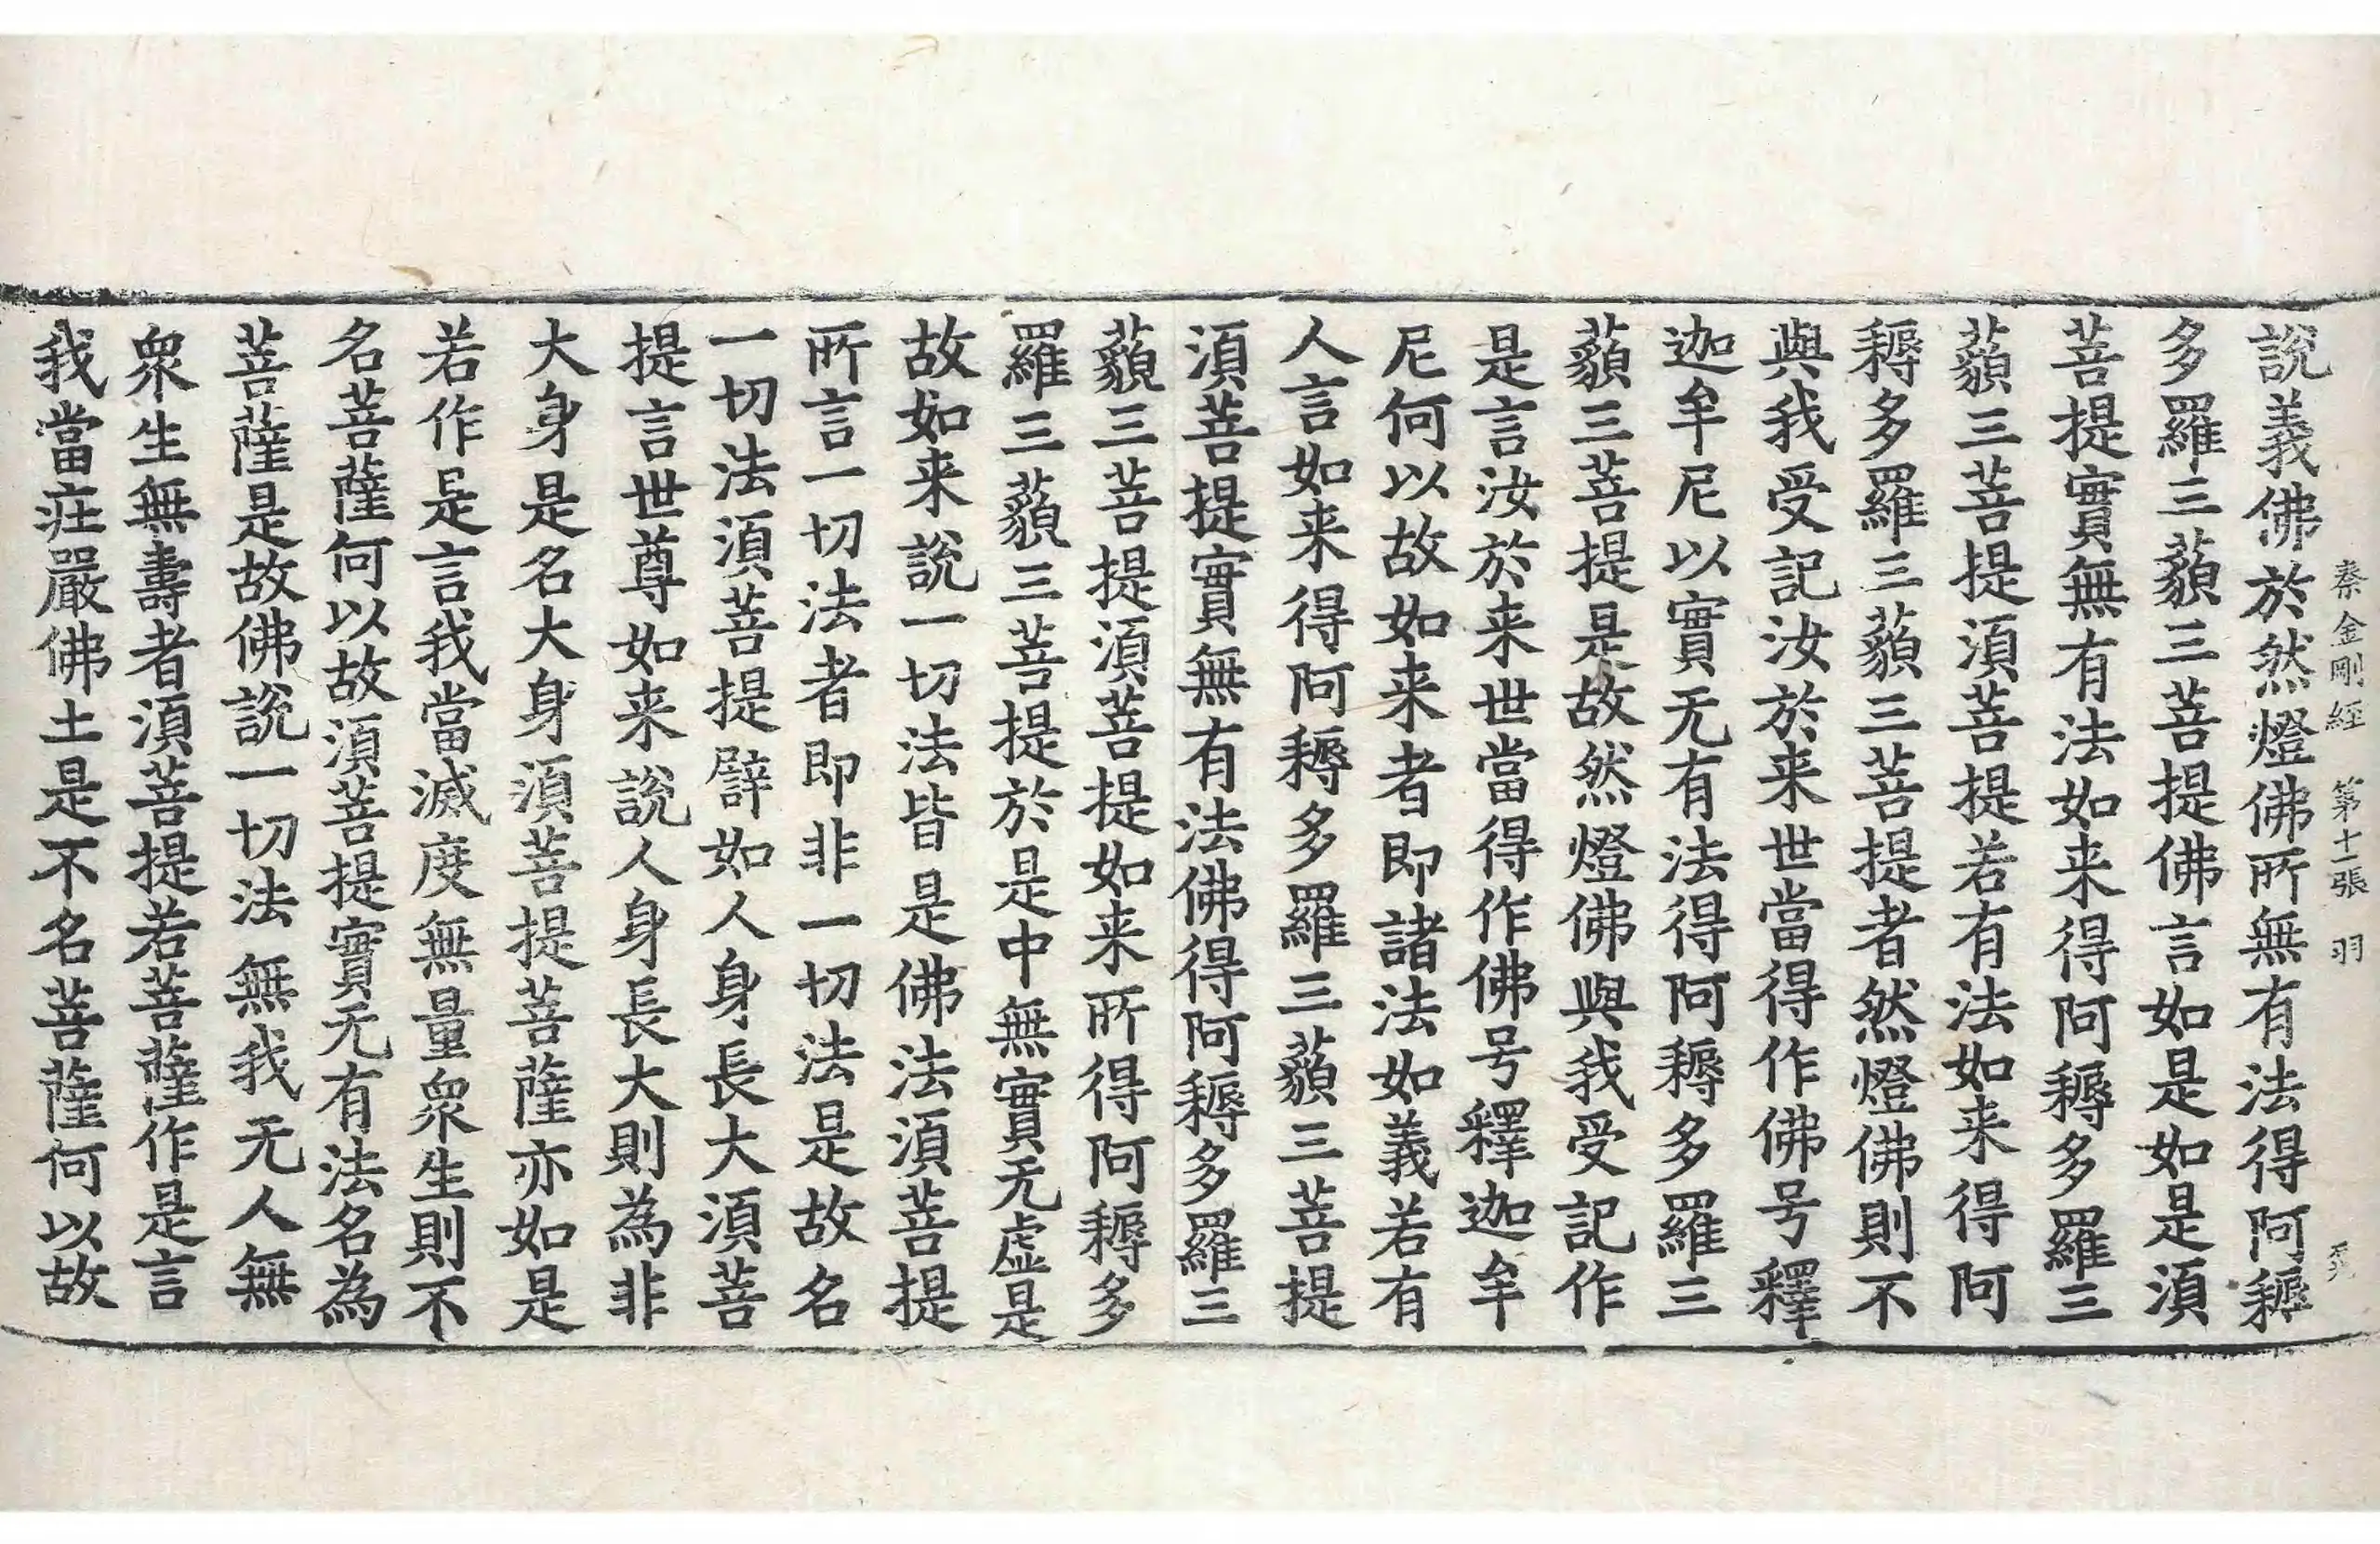 秦金剛経 第十一張 羽
說義佛於然燈佛所無有法得阿耨
多羅三藐三菩提佛言如是如是湏
菩提實無有法如来得阿耨多羅三
藐三菩提湏菩提若有法如来得阿
耨多羅三藐三菩提者然燈佛則不
與我受記汝於来世當得作佛号釋
迦牟尼以實无有法得阿耨多羅三
藐三菩提是故然燈佛與我受記作
是言汝於来世當得作佛号釋迦牟
尼何以故如来者即諸法如義若有
人言如来得阿耨多羅三藐三菩提
湏菩提實無有法佛得阿耨多羅三
藐三菩提湏菩提如来所得阿耨多
羅三藐三菩提於是中無實无虛是
故如来說一切法皆是佛法湏菩提
所言一切法者即非一切法是故名
一切法湏菩提譬如人身長大湏菩
提言世尊如来說人身長大則為非
大身是名大身湏菩提菩薩亦如是
若作是言我當滅度無量衆生則不
名菩薩何以故湏菩提實无有法名為
菩薩是故佛說一切法無我无人無
衆生無壽者湏菩提若菩薩作是言
我當莊嚴佛土是不名菩薩何以故